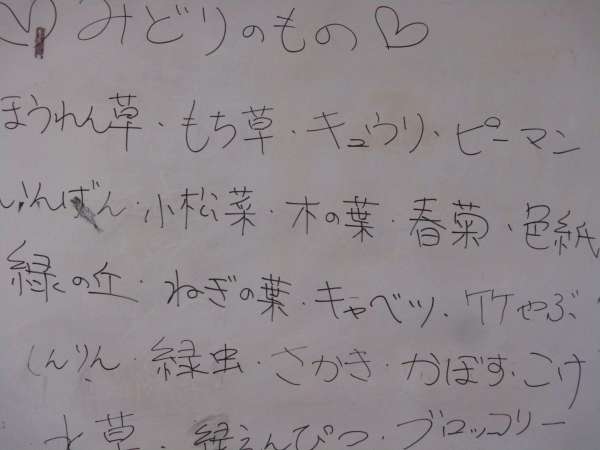 ♡みどりのもの♡
ほうれん草・もち草・キュウリ・ピーマン
いんげん・小松菜・木の葉・春菊・色紙
緑の丘・ねぎの葉・キャベツ・竹やぶ
しんりん・緑虫・さかき・かぼす・こけ
水草・緑えんぴつ・ブロッコリー